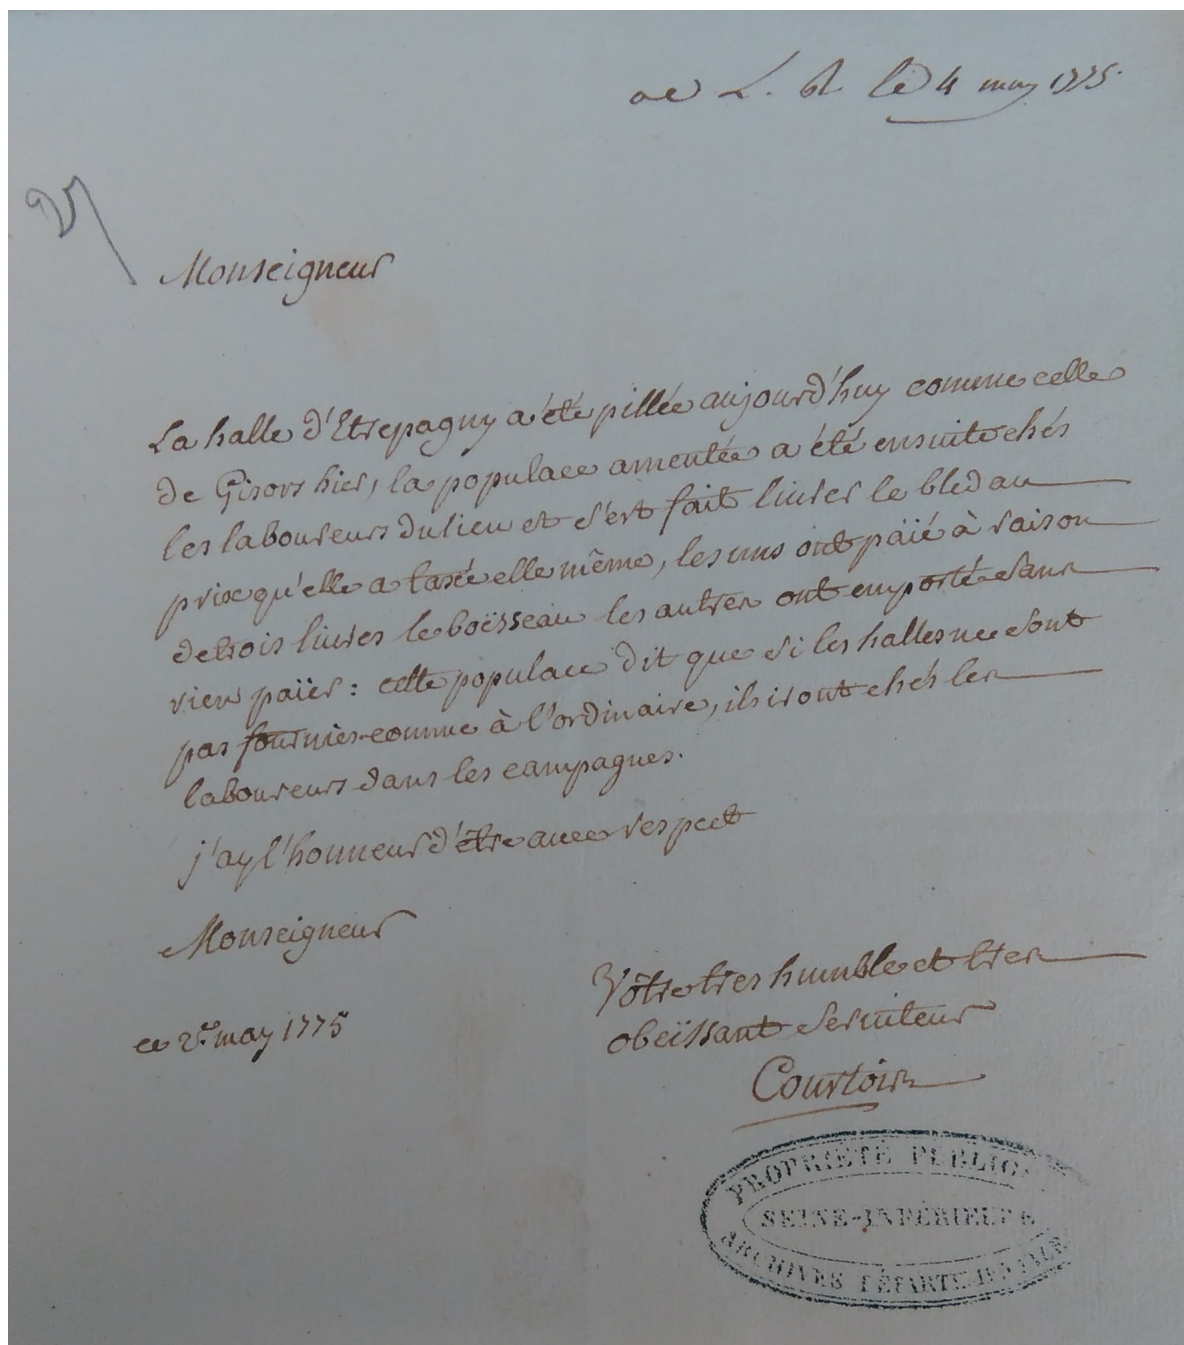 L. R. le 4 may 1775.
Monseigneur
La halle d'Etrepagny a été pillée aujourd'huy comme celle
de Gisors hier, la populace ameutée a été ensuite chés
les laboureurs du lieu et s'est fait livrer le bled au
prix qu'elle a taxé elle même, les uns ont païé à raison
de trois livres le boisseau les autres ont emporté sans
rien païer : cette populace dit que si les halles ne sont
pas fournies comme à l'ordinaire, ils iront chés les
laboureurs dans les campagnes.
j'ay l'honneur d'être avec respect
Monseigneur
Vôtre tres humble et tres
obeïssant serviteur
Courtois
ce 2. may 1775
PROPRIÉTÉ PUBLIQ
SEINE-INFÉRIEURE
ARCHIVES DÉPARTEMENTALE